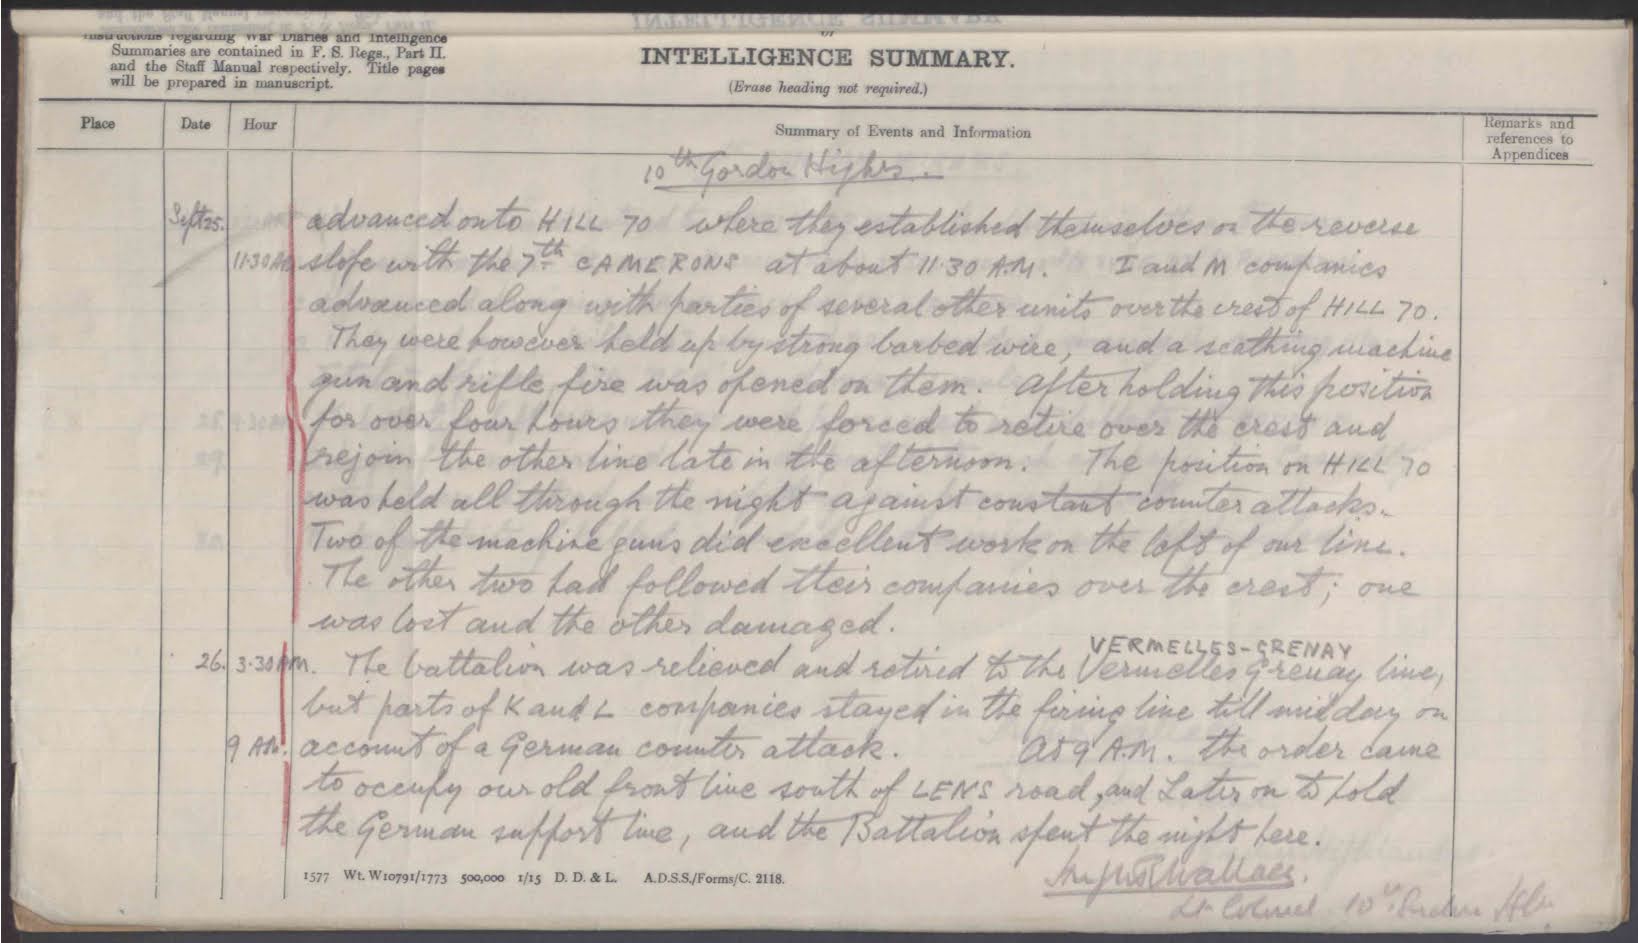 Instructions regarding War Diaries and Intelligence
Summaries are contained in F. S. Regs., Part II.
and the Staff Manual respectively. Title pages
will be prepared in manuscript.
or
INTELLIGENCE SUMMARY.
(Erase heading not required.)
Place Date Hour Summary of Events and Information Remarks and
references to
Appendices
10th Gordon Highrs.
Sept 25. advanced onto HILL 70 where they established themselves on the reverse
11.30 AM slope with the 7th CAMERONS at about 11.30 A.M. I and M companies
advanced along with parties of several other units over the crest of HILL 70.
They were however held up by strong barbed wire, and a scathing machine
gun and rifle fire was opened on them. After holding this position
for over four hours they were forced to retire over the crest and
rejoin the other line late in the afternoon. The position on HILL 70
was held all through the night against constant counter attacks.
Two of the machine guns did excellent work on the left of our line.
The other two had followed their companies over the crest; one
was lost and the other damaged.
VERMELLES-GRENAY
26. 3.30 AM. The battalion was relieved and retired to the Vermelles Grenay line,
but parts of K and L companies stayed in the firing line till midday on
9 AM. account of a German counter attack. At 9 A.M. the order came
to occupy our old front line south of LENS road, and Later on to hold
the German support line, and the Battalion spent the night here.
1577 Wt. W10791/1773 500,000 1/15 D. D. & L. A.D.S.S./Forms/C. 2118.
Wallace.
Lt Colonel 10th Gordon